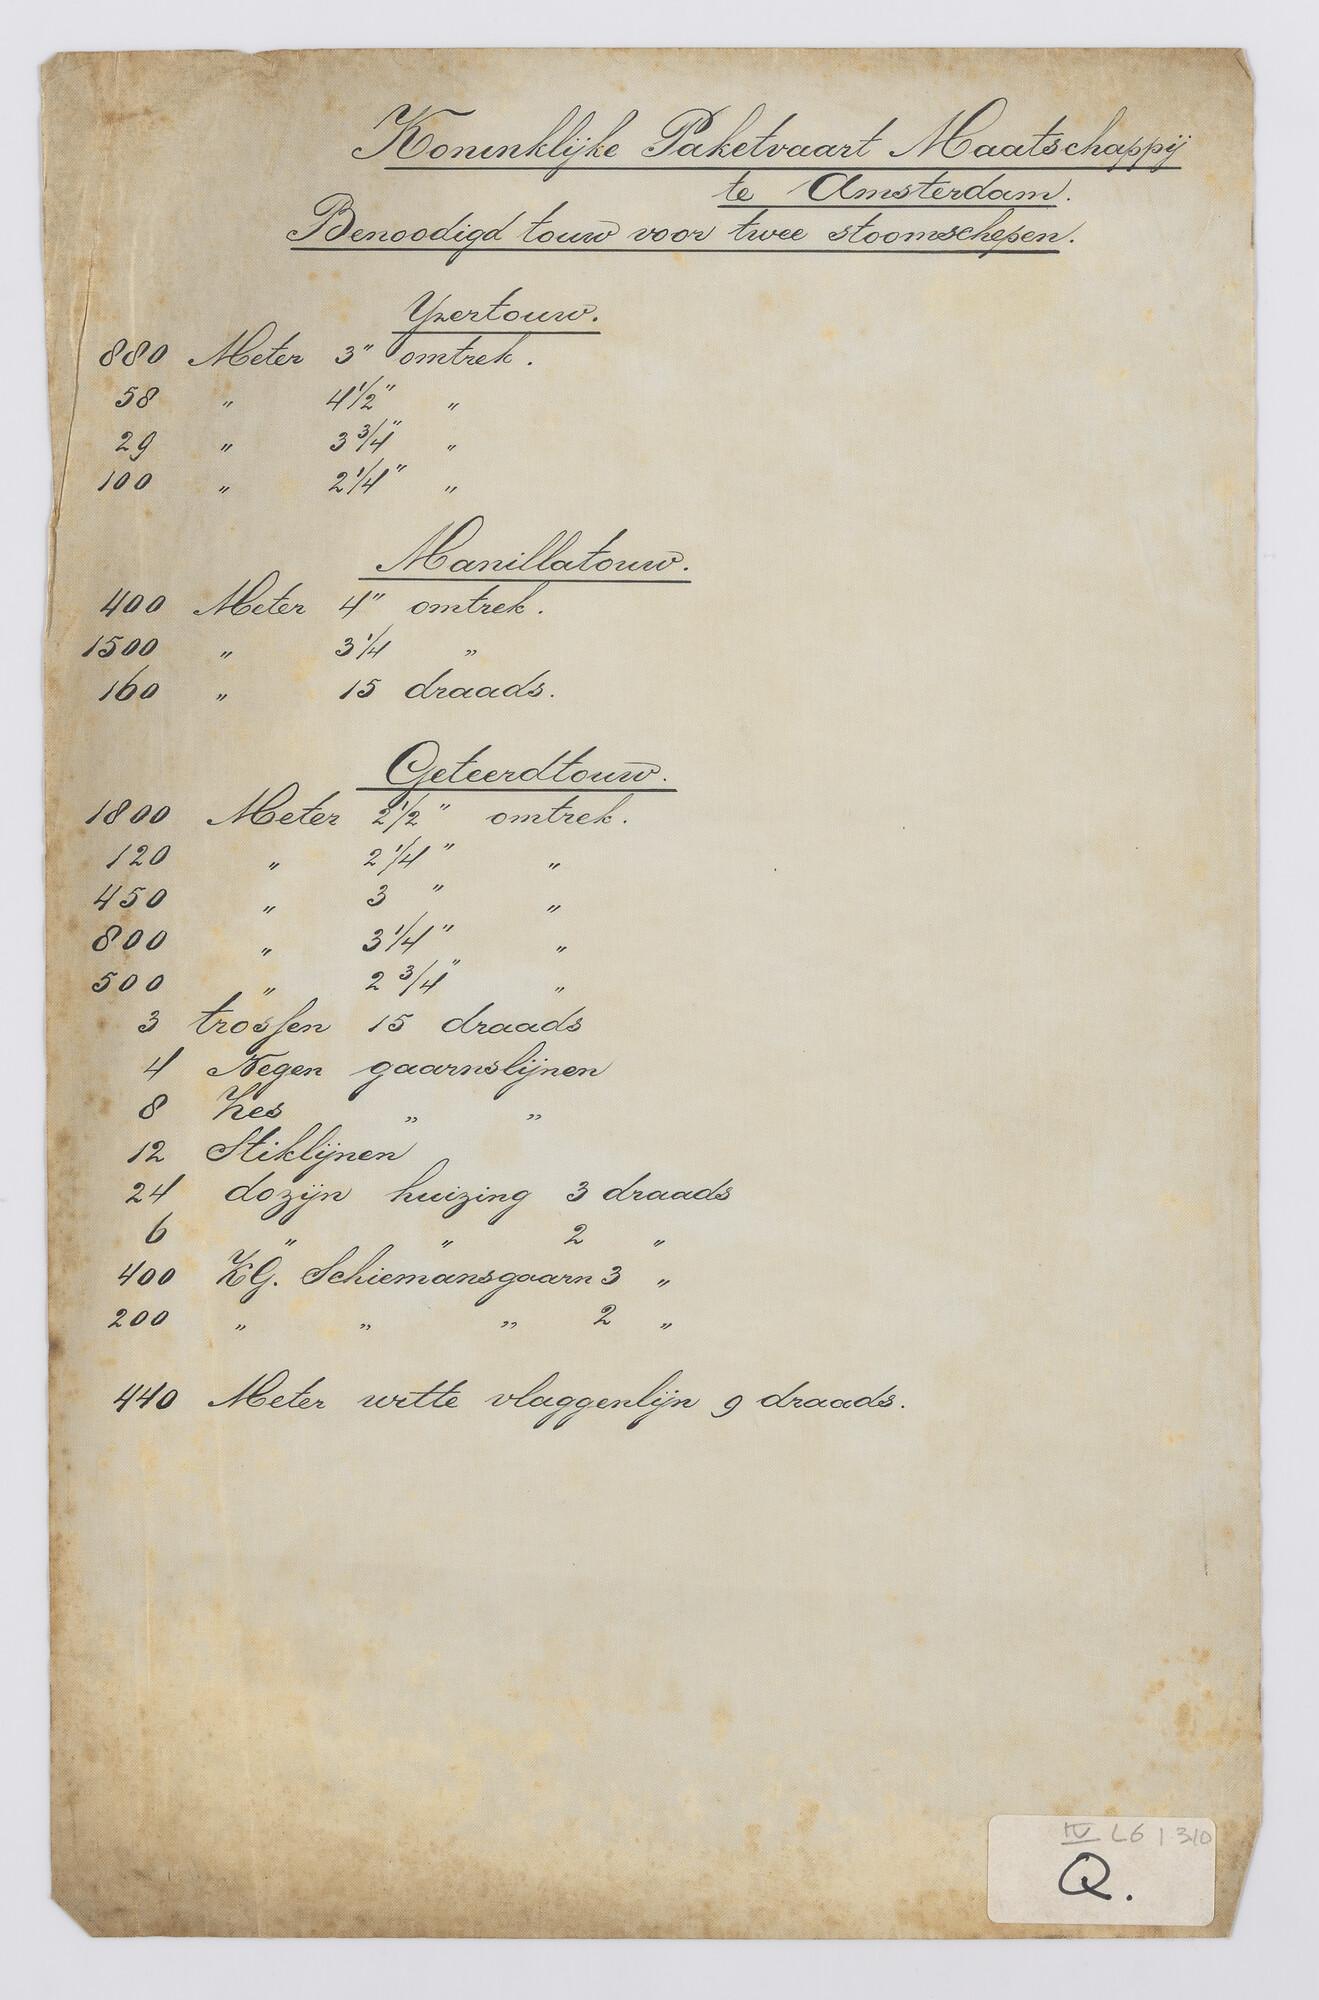 Koninklijke Paketvaart Maatschappij
te Amsterdam.
Benoodigd touw voor twee stoomschepen.
Yzertouw.
880 Meter 3" omtrek.
58 " 4 1/2" "
29 " 3 3/4" "
100 " 2 1/4" "
Manillatouw.
400 Meter 4" omtrek.
1500 " 3 1/4 "
160 " 15 draads.
Geteerdtouw.
1800 Meter 2 1/2" omtrek.
120 " 2 1/4" "
450 " 3 " "
800 " 3 1/4" "
500 " 2 3/4" "
3 trossen 15 draads
4 Negen gaarnslijnen
8 Zes " "
12 Stiklijnen
24 dozijn huizing 3 draads
6 " " 2 "
400 KG. Schiemansgaarn 3 "
200 " " " 2 "
440 Meter witte vlaggenlijn 9 draads.
IV L6 1310
Q.